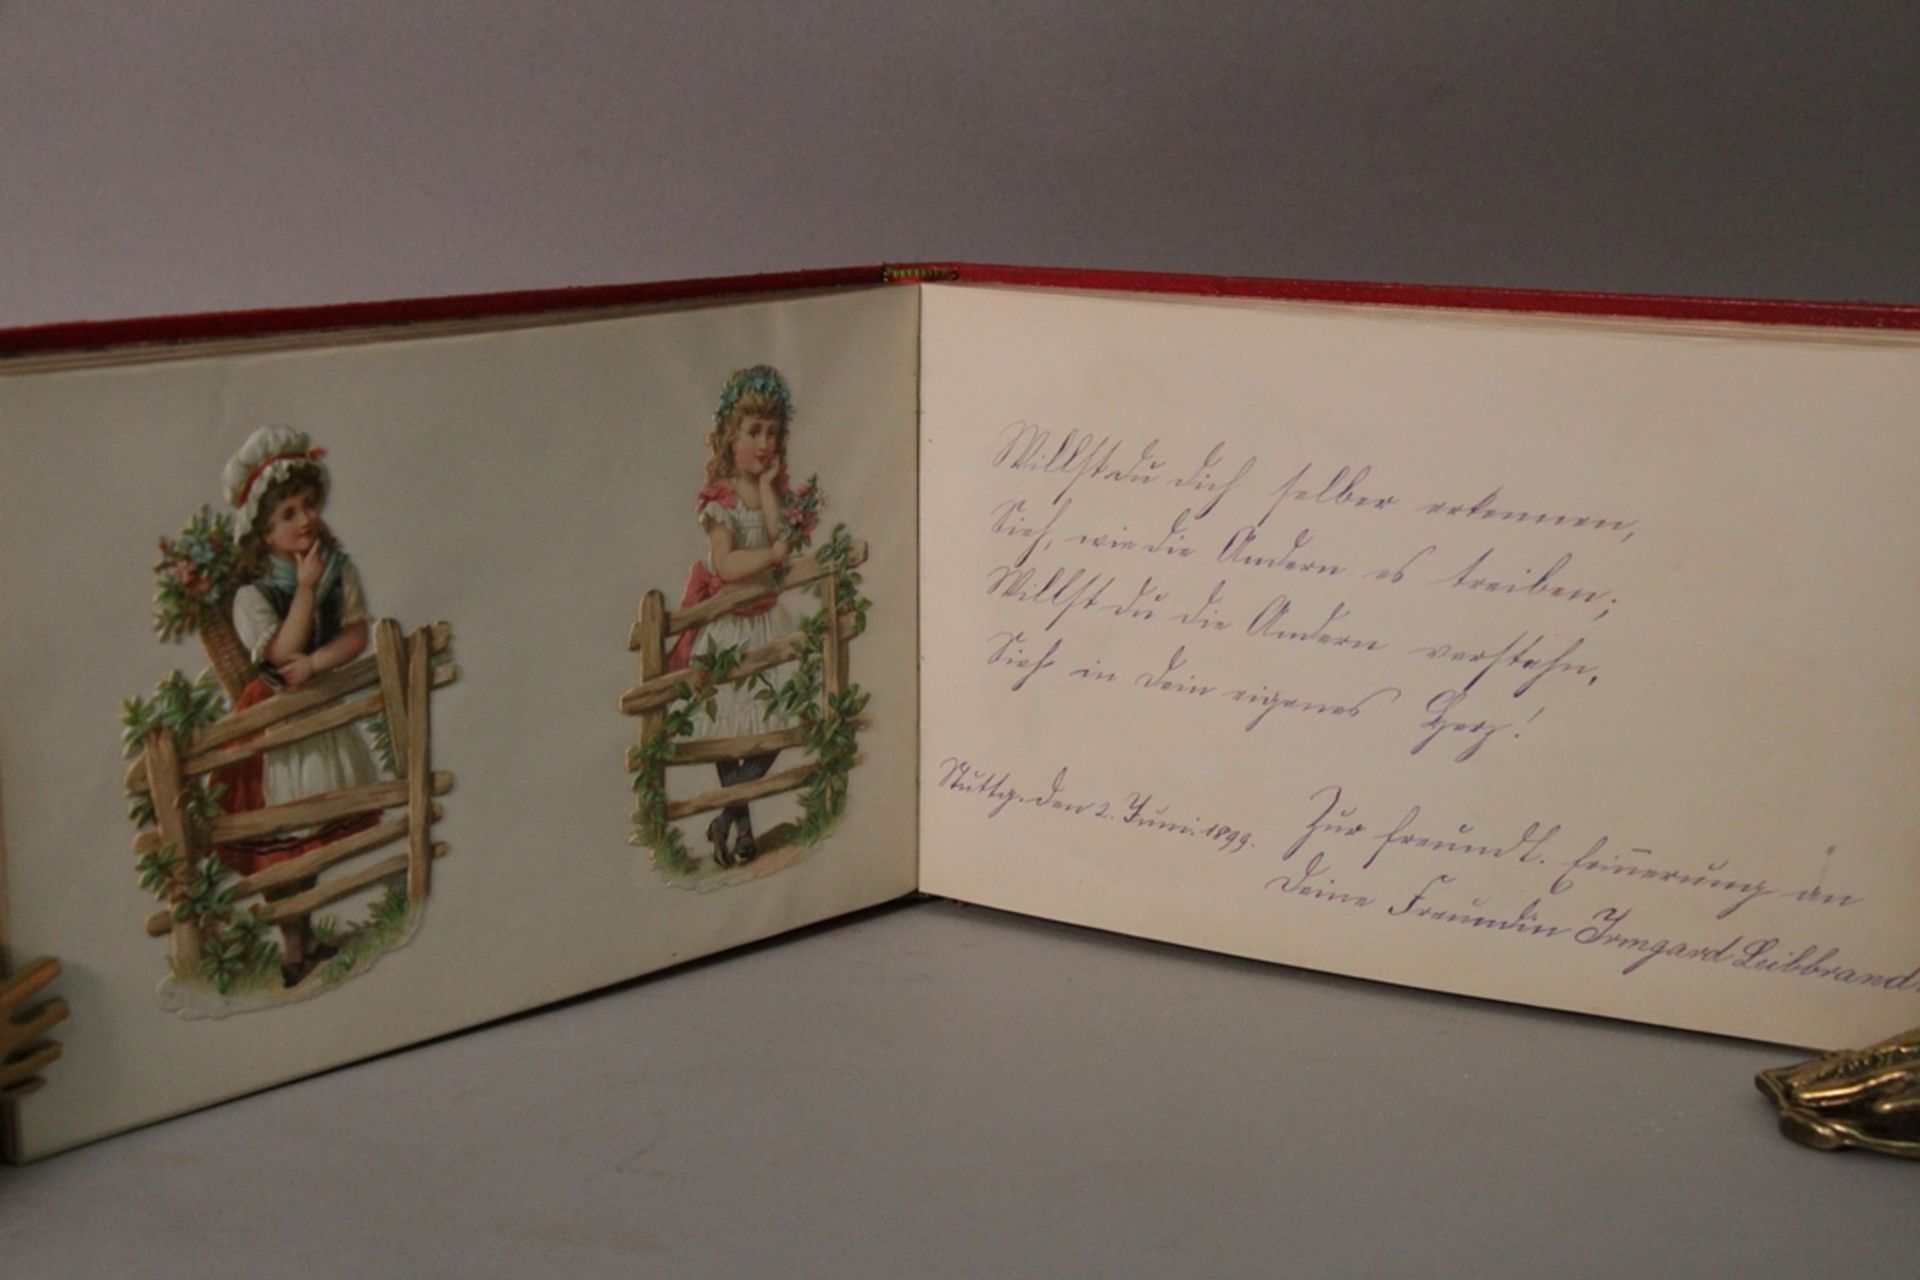 Willst du dich selber erkennen,
Sieh, wie die Andern es treiben;
Willst du die Andern verstehn,
Sieh in dein eigenes Herz!
Stuttg. den 2. Juni. 1899.
Zur freundl. Erin̄erung an
Deine Freundin Irmgard Leibbrand.